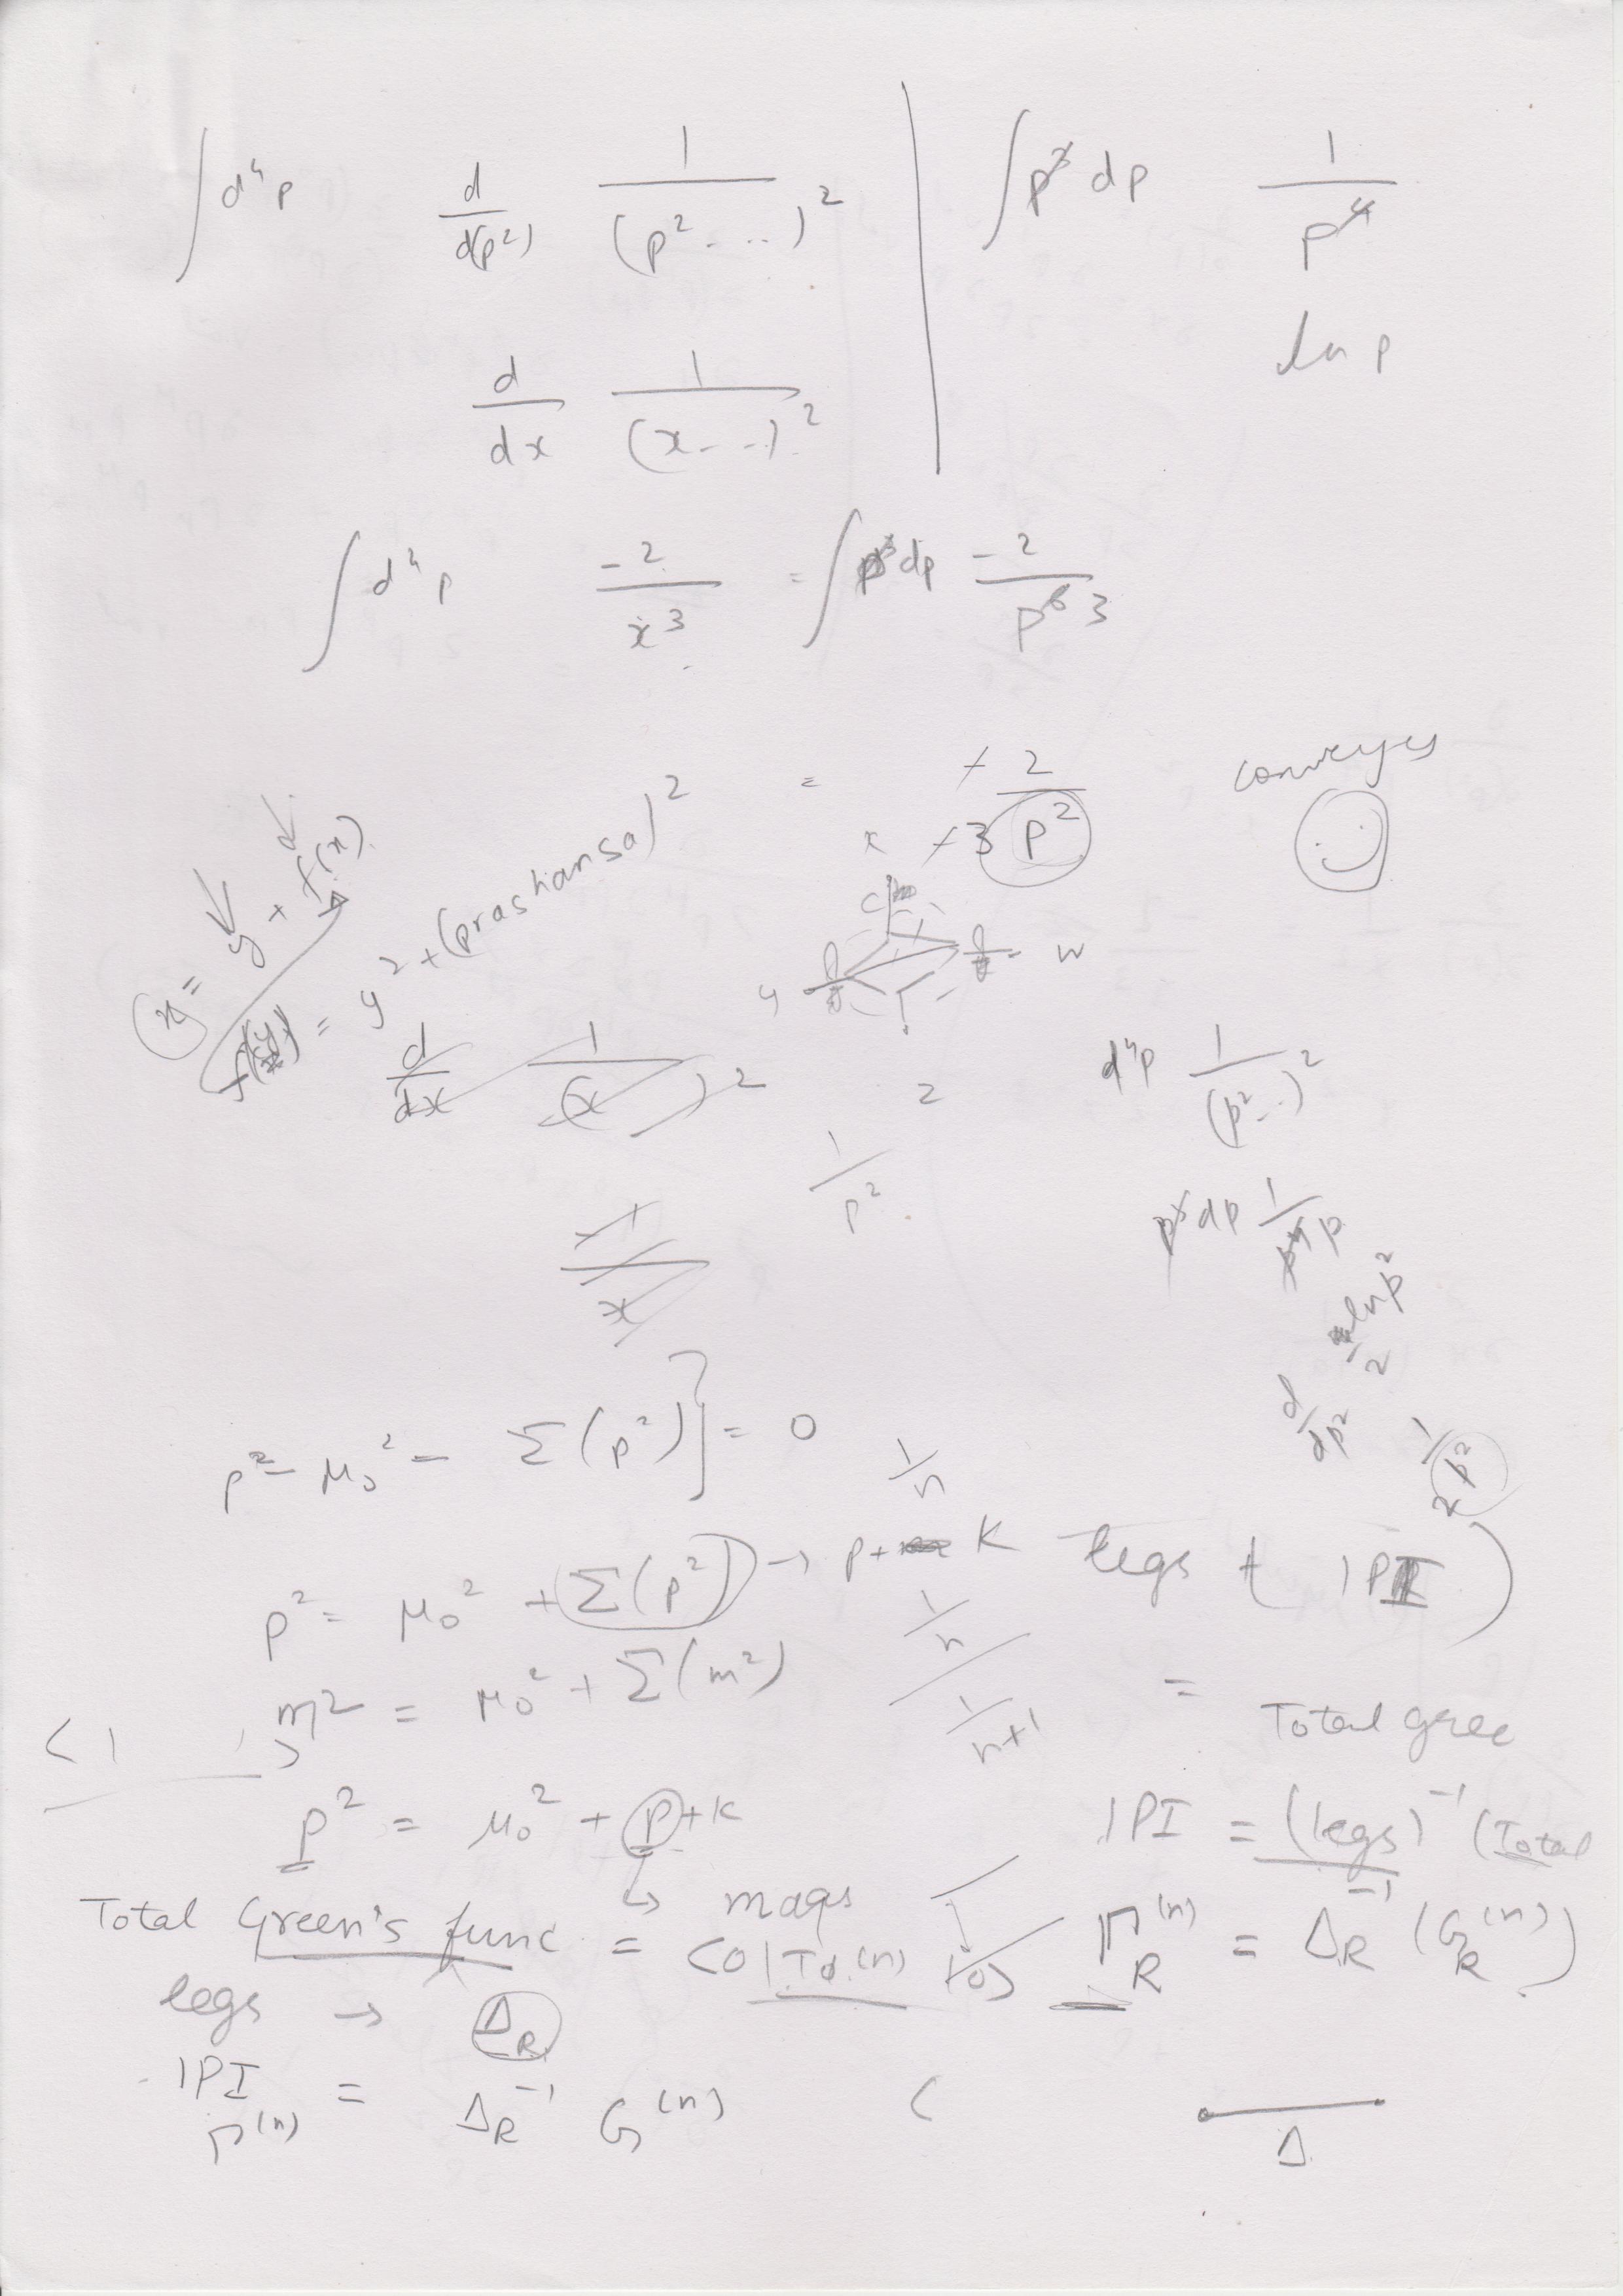 ∫ d⁴p d/d(p²) 1/(p² - ...)²
∫ p³ dp 1/p⁴
ln p
d/dx 1/(x - - ..)²
∫ d⁴p -2/x³ = ∫ p³ dp -2/p⁶ 3
= + 2/+3 p²
converges
x = y + f(x)
f(y) = y² + (prashansa)²
x
y
w
d/dx 1/(x )²
2
d⁴p 1/(p² - ..)²
1/p²
p³ dp 1/p⁴ p
ln p²
2
d/dp² 1/2p²
x
p² - μ₀² - Σ(p²)] = 0
1/n
p² = μ₀² + Σ(p²) → p + K
legs + 1PI )
m² = μ₀² + Σ(m²)
1/n / 1/n+1
=
Total gree
p² = μ₀² + p + K
1PI = (legs)⁻¹ (Total
Total Green's func = <0|Tϕ.(n) |0>
Γ_R⁽ⁿ⁾ = Δ_R⁻¹ (G_R⁽ⁿ⁾)
legs → Δ_R
1PI
Γ⁽ⁿ⁾ = Δ_R⁻¹ G⁽ⁿ⁾ (
Δ